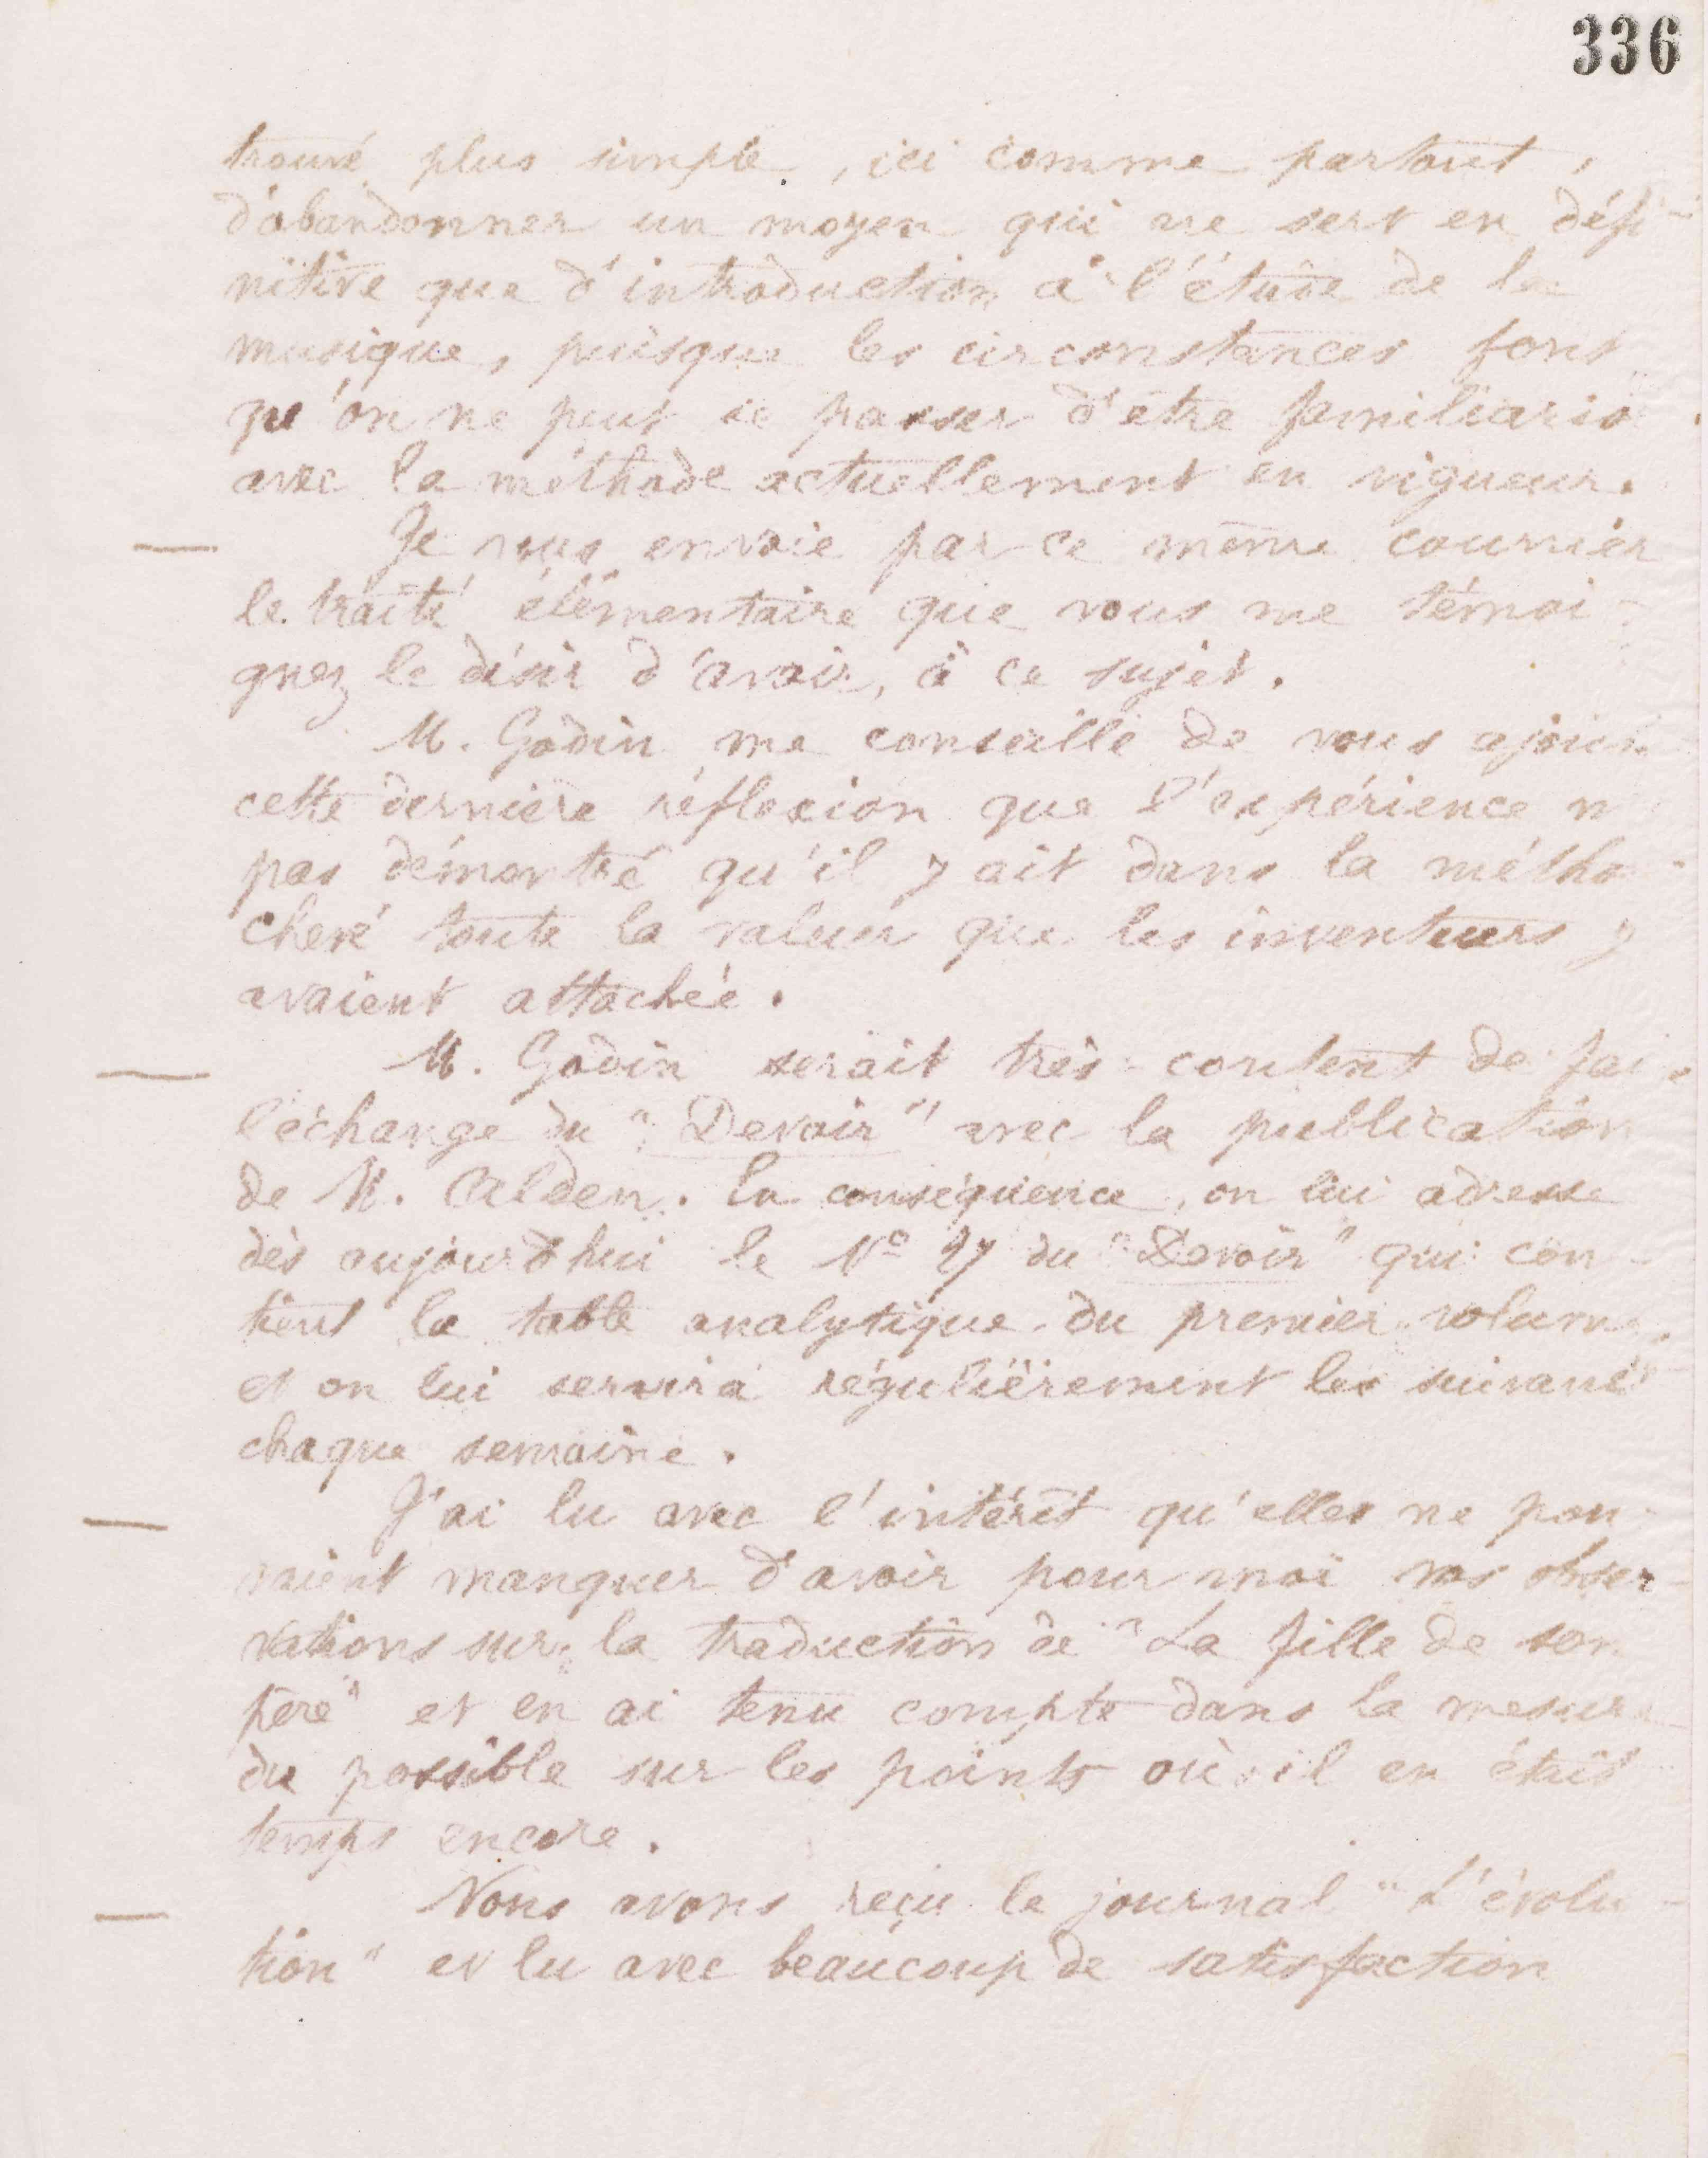 336
trouvé plus simple, ici comme partout,
d'abandonner un moyen qui ne sert en défi-
nitive que d'introduction à l'étude de la
musique, puisque les circonstances font
qu'on ne peut se passer d'être familiaris
avec la méthode actuellement en vigueur.
— Je vous envoie par ce même courrier
le traité élémentaire que vous me témoi-
gnez le désir d'avoir, à ce sujet.
M. Godin me conseille de vous ajou
cette dernière réflexion que l'expérience n
pas démontré qu'il y ait dans la métho
chevé toute la valeur que les inventeurs y
avaient attachée.
— M. Godin serait très-content de fai
l'échange du "Devoir" avec la publication
de M. Alden. En conséquence, on lui adresse
dès aujourd'hui le No 27 du "Devoir" qui con-
tient la table analytique du premier volume,
et on lui servira régulièrement les suivants
chaque semaine.
— J'ai lu avec l'intérêt qu'elles ne pou-
vaient manquer d'avoir pour moi vos obser-
vations sur la traduction de "La fille de son
père" et en ai tenu compte dans la mesure
du possible sur les points où il en était
temps encore.
— Nous avons reçu le journal "L'évolu-
tion" et lu avec beaucoup de satisfaction